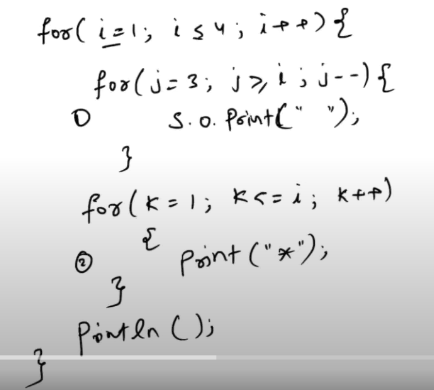 for( i=1; i≤4; i++){
for(j=3; j≥i; j--){
① S.o. Print(" ");
}
for(K=1; K<=i; K++)
{
② Print("*");
}
Println();
}